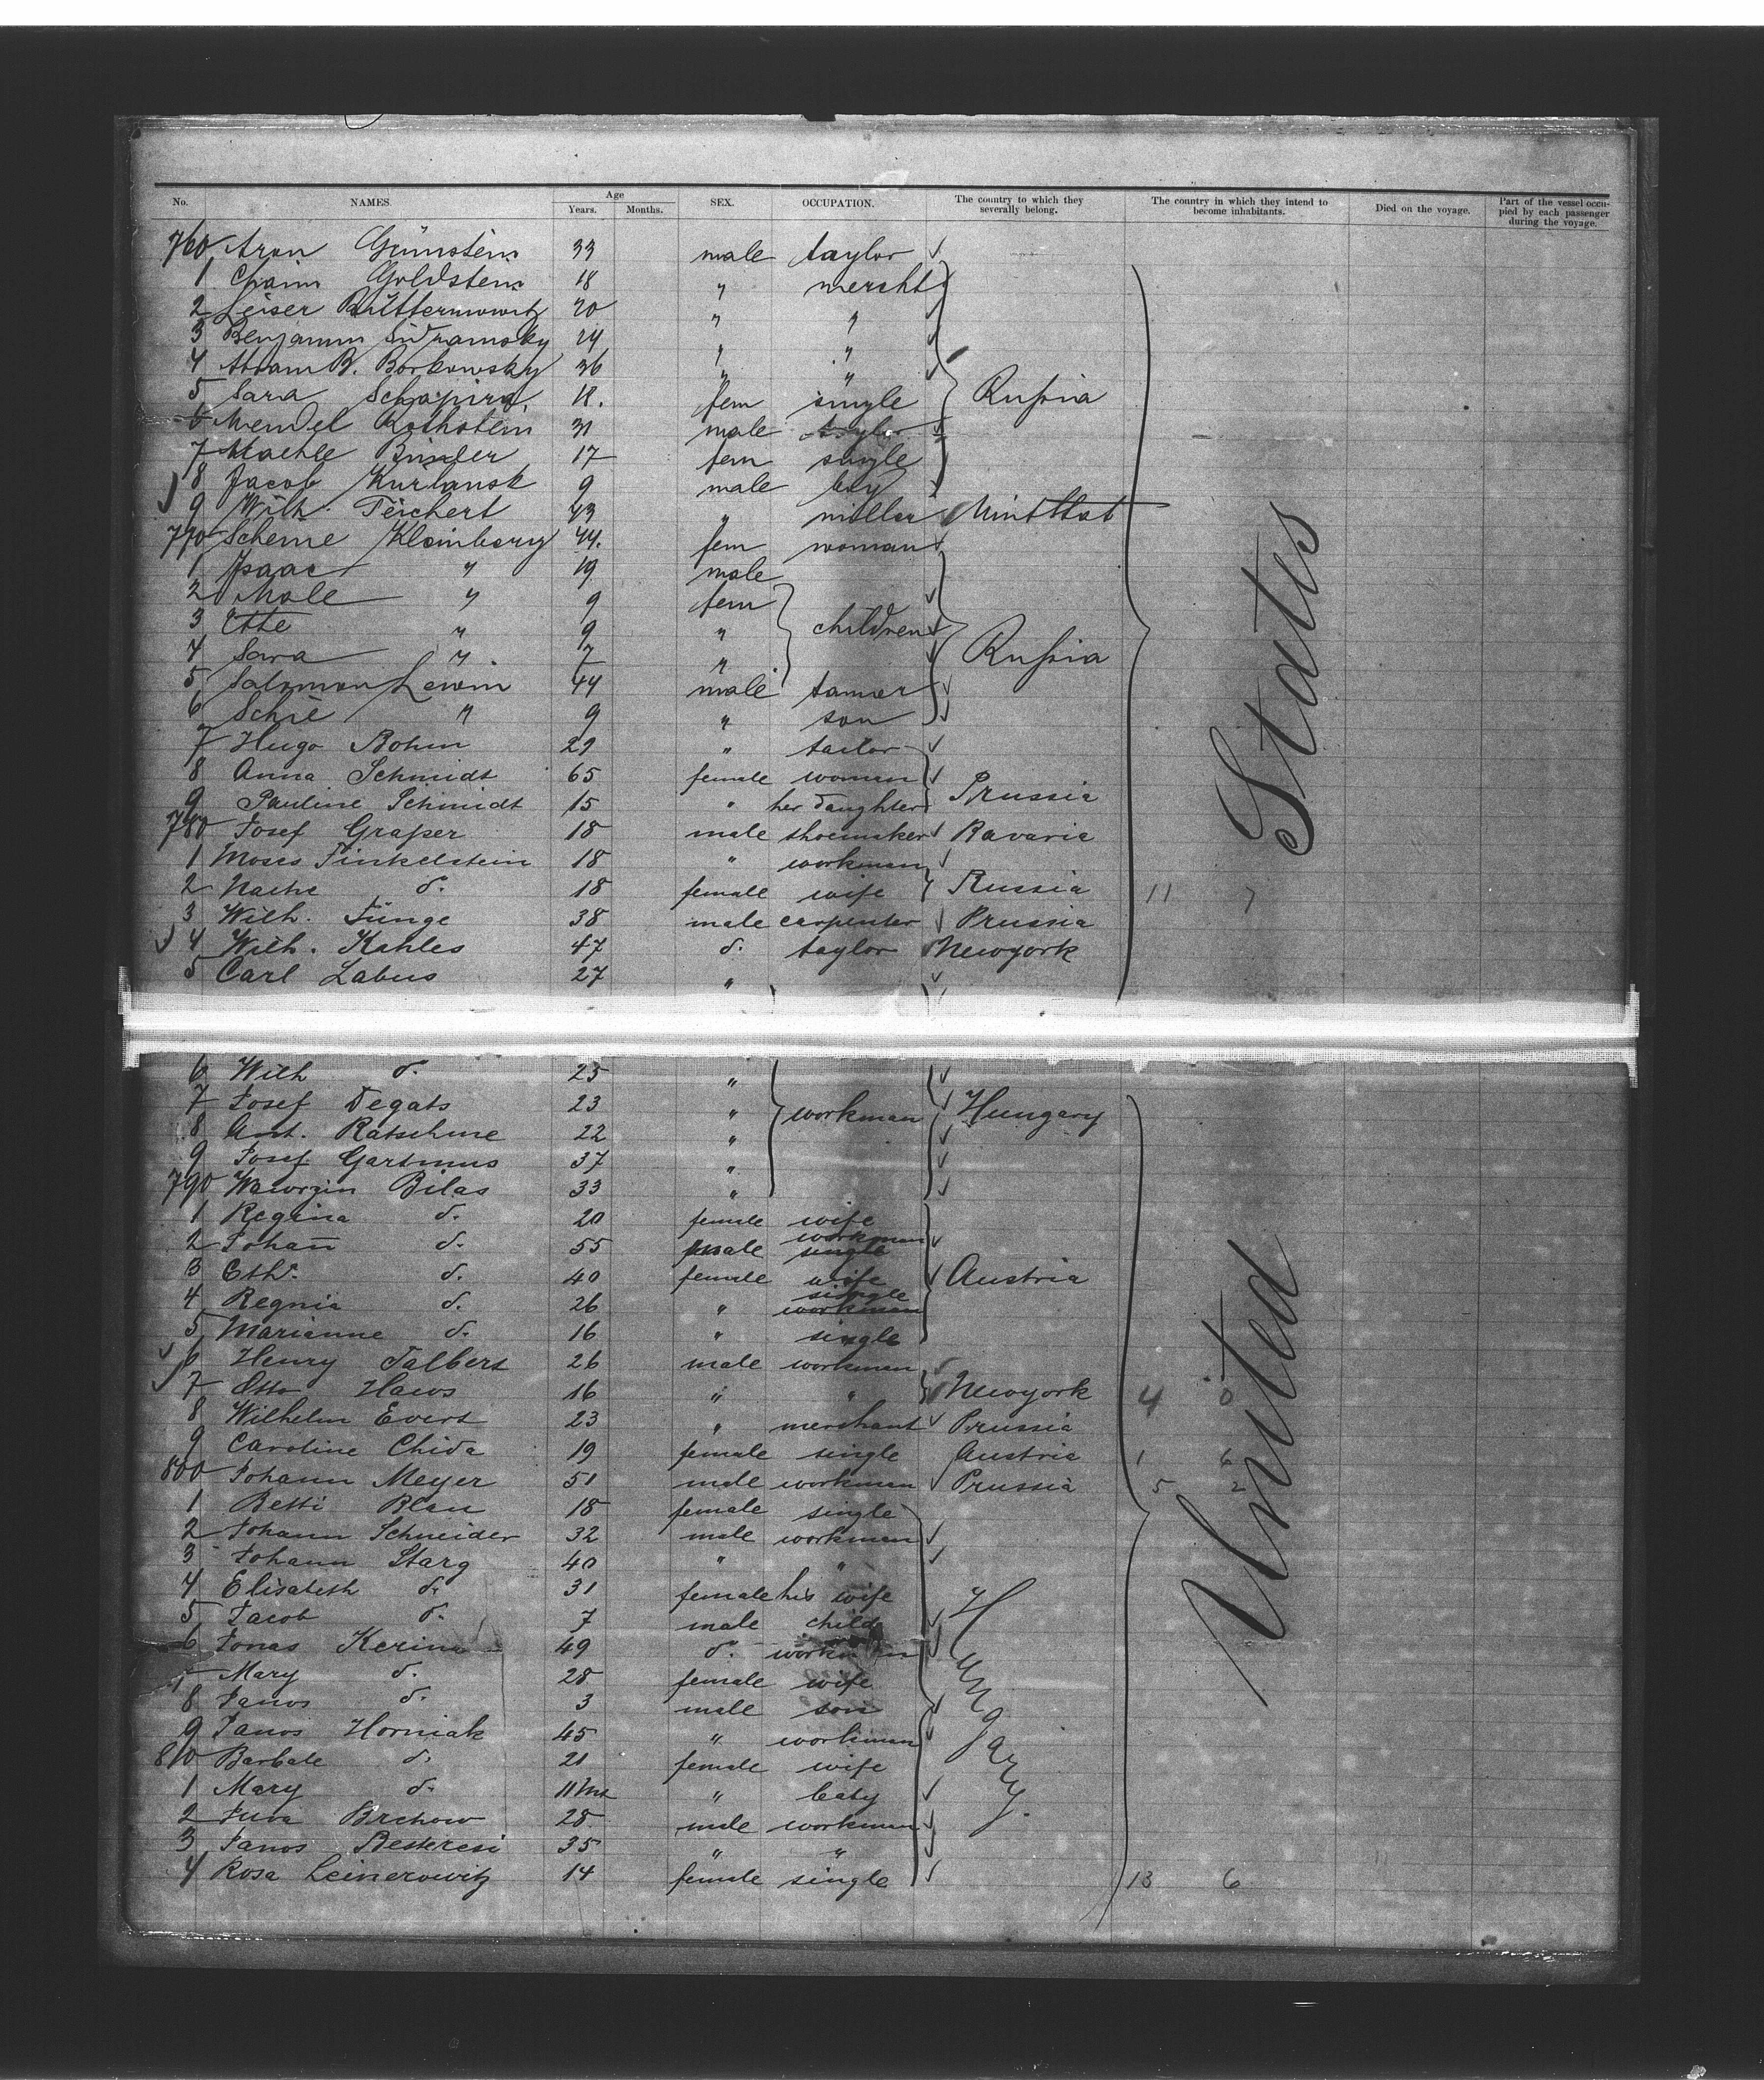 No. NAMES. Age Years. Months. SEX. OCCUPATION. The country to which they severally belong. The country in which they intend to become inhabitants. Died on the voyage. Part of the vessel occupied by each passenger during the voyage.
760 Aron Grünstein 33 male taylor
1 Chaim Goldstein 18 " mercht
2 Leiser 20 " "
3 Benjamin 24 " "
4 Abram B. Borkowsky 36 " "
5 Sara Schapira 18. fem single Russia
6 Mendel Rothstein 31 male taylor
7 Machle Binder 17 fem single
8 Jacob Kurlansk 9 male boy
9 Wilh. Teichert 43 " miller
770 Scheine Kleinberg 44. fem woman
1 Isaac " 19 male
2 Male " 9 fem
3 Ette " 9 " children
4 Sara " 7 " Russia
5 Salzman Lewin 44 male tanner
6 Schie " 9 " son
7 Hugo Bohm 29 " tailor
8 Anna Schmidt 65 female woman Prussia
9 Pauline Schmidt 15 " her daughter
780 Josef Grasser 18 male shoemaker Bavaria
1 Moses Finkelstein 18 " workman
2 Nache d. 18 female wife Russia 11 7
3 Wilh. Junge 38 male carpenter Prussia
4 Wilh. Kahles 47 d. taylor Newyork
5 Carl Labus 27 "
6 Wilh d. 25 "
7 Josef Degats 23 " workman Hungary
8 Ant. Ratschine 22 "
9 Josef Gartmus 37 "
790 Wawrzin Bilas 33 "
1 Regina d. 20 female wife
2 Johan̄ d. 55 male workman single
3 Cth. d. 40 female wife Austria
4 Regnia d. 26 " single workman
5 Marianne d. 16 " single
6 Henry Talbert 26 male workman
7 Otto Haws 16 " " Newyork 4 0
8 Wilhelm Evers 23 " merchant Prussia
9 Caroline Chida 19 female single Austria 1 6
800 Johann Meyer 51 male workman Prussia 5 2
1 Betti Blau 18 female single
2 Johann Schneider 32 male workman
3 Johann Starg 40 " "
4 Elisabeth d. 31 female his wife
5 Jacob d. 7 male child
6 Jonas 49 d. workman
7 Mary d. 28 female wife
8 Janos d. 3 male son
9 Janos Horniak 45 " workman
810 Barbale d. 21 female wife
1 Mary d. 11 Mt " baby
2 Juva Brchow 28 male workman
3 Janos Besteresi 35 " "
4 Rosa Leinerowitz 14 female single 13 6
Hungary.
United States